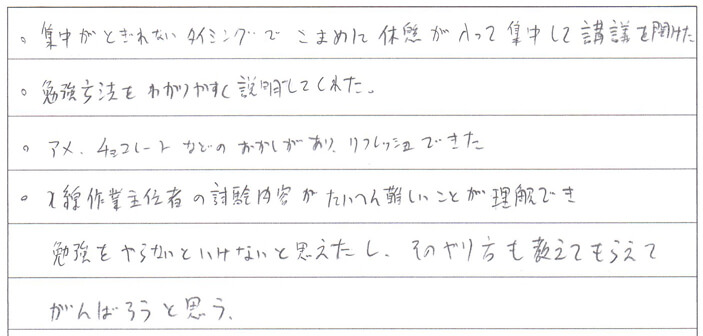 。集中がとぎれないタイミングでこまめに休態が入って集中して講議を聞けた
。勉強方法をわかりやすく説明してくれた。
。アメ、チョコレートなどのおかしがあり、リフレッシュできた
。X線作業主位者の試験内容がたいへん難しいことが理解でき
勉強をやらないといけないと思えたし、そのやり方も教えてもらえて
がんばろうと思う。